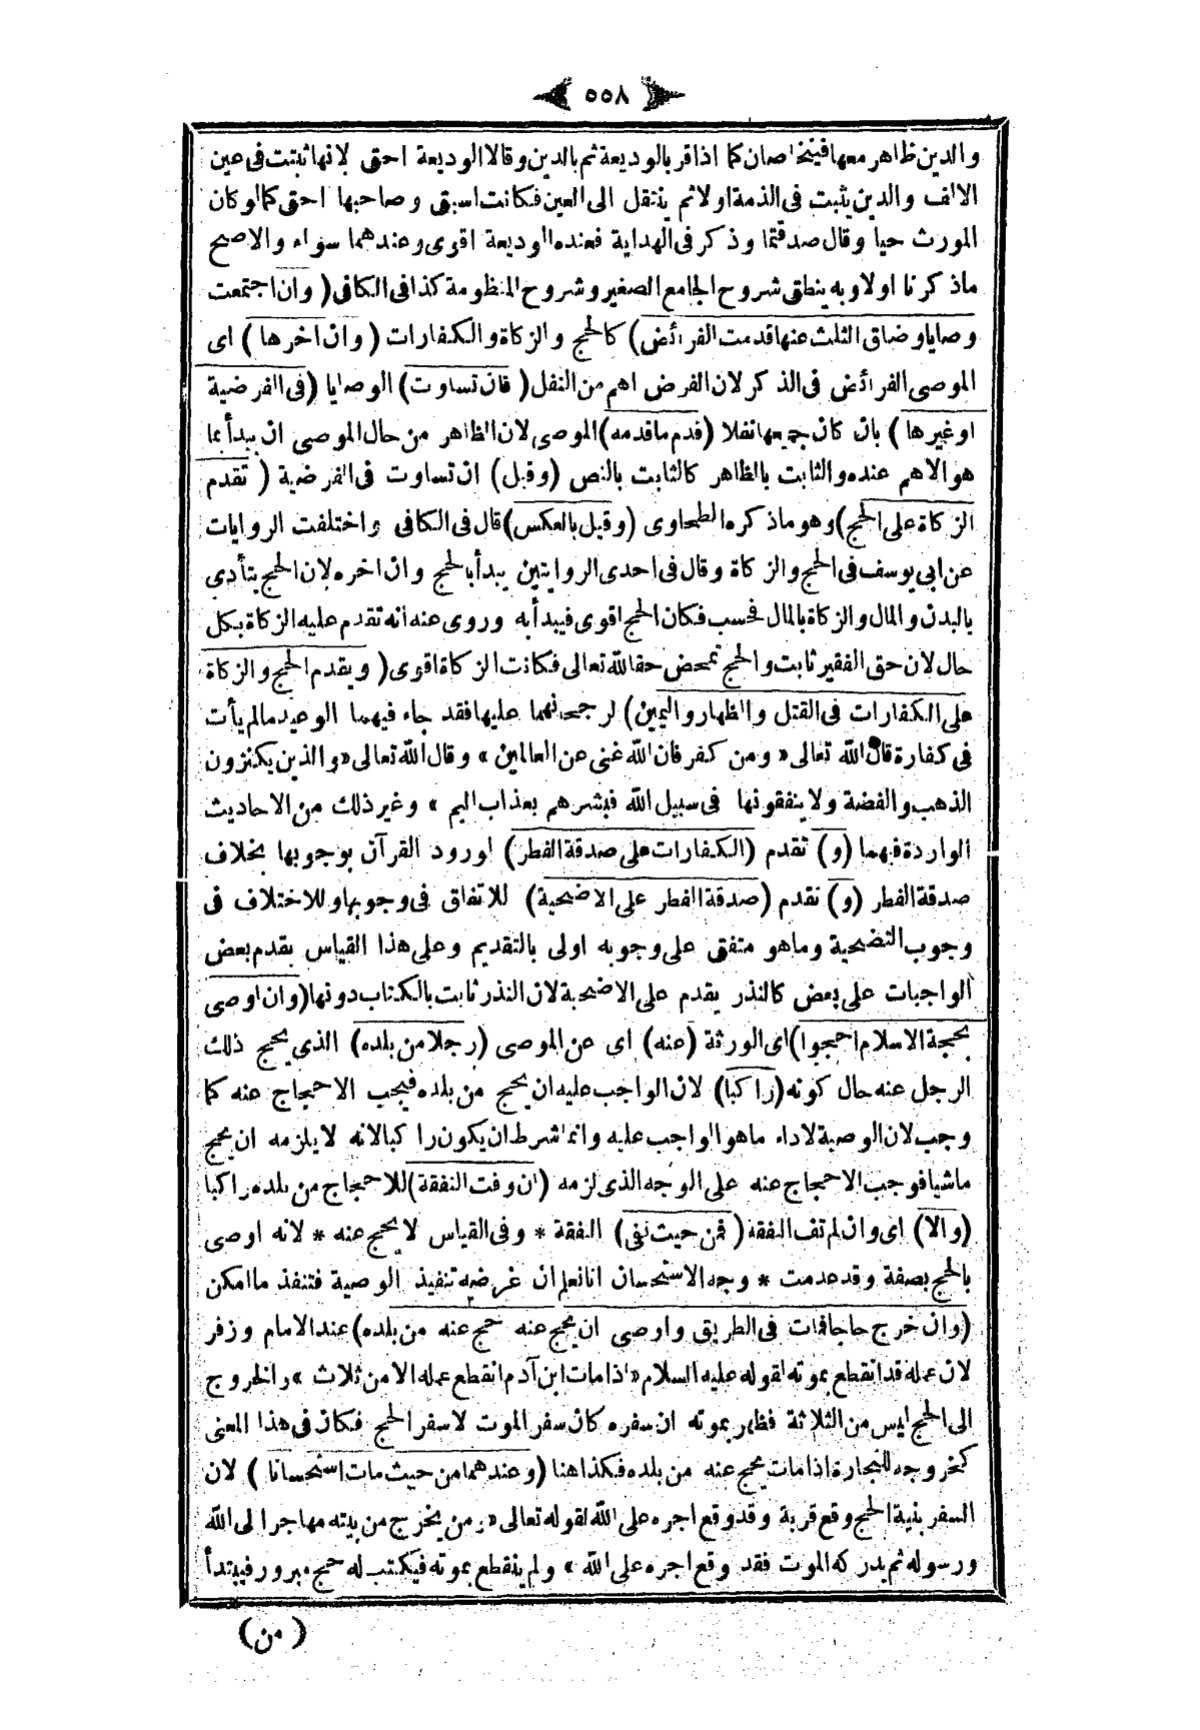 ٥٥٨
والدين ظاهر معها فيتخاصان كما اذا قر بالوديعة ثم بالدين وقالا الوديعة احق لانها ثبتت فى عين
الالف والدين يثبت فى الذمة اولا ثم ينتقل الى العين فكانت اسبق وصاحبها احق كما لو كان
المورث حيا وقال صدقتما وذكر فى الهداية فعنده الوديعة اقوى وعندهما سواء والاصح
ماذكرنا اولا وبه ينطق شروح الجامع الصغير وشروح المنظومة كذا فى الكافى ( وان اجتمعت
وصايا وضاق الثلث عنها قدمت الفرائض ) كالحج والزكاة والكفارات ( وان اخرها ) اى
الموصى الفرائض فى الذكر لان الفرض اهم من النفل ( فان تساوت ) الوصايا ( فى الفرضية
اوغيرها ) بان كان جميعها نفلا ( قدم ماقدمه ) الموصى لان الظاهر من حال الموصى ان يبدأ بما
هو الاهم عنده والثابت بالظاهر كالثابت بالنص ( وقيل ) ان تساوت فى الفرضية ( تقدم
الزكاة على الحج ) وهو ماذكره الطحاوى ( وقيل بالعكس ) قال فى الكافى واختلفت الروايات
عن ابى يوسف فى الحج والزكاة وقال فى احدى الروايتين يبدأ بالحج وان اخره لان الحج يتأدى
بالبدن والمال والزكاة بالمال فحسب فكان الحج اقوى فيبدأ به وروى عنه انه تقدم عليه الزكاة بكل
حال لان حق الفقير ثابت والحج تمحض حقالله تعالى فكانت الزكاة اقوى ( ويقدم الحج والزكاة
على الكفارات فى القتل والظهار واليمين ) لرجحانهما عليها فقد جاء فيهما الوعيد مالم يأت
فى كفارة قال الله تعالى « ومن كفر فان الله غنى عن العالمين » وقال الله تعالى « والذين يكنزون
الذهب والفضة ولا ينفقونها فى سبيل الله فبشرهم بعذاب اليم » وغير ذلك من الاحاديث
الواردة فيهما ( و ) تقدم ( الكفارات على صدقة الفطر ) لورود القرآن بوجوبها بخلاف
صدقة الفطر ( و ) تقدم ( صدقة الفطر على الاضحية ) للاتفاق فى وجوبها وللاختلاف فى
وجوب التضحية وماهو متفق على وجوبه اولى بالتقديم وعلى هذا القياس يقدم بعض
الواجبات على بعض كالنذر يقدم على الاضحية لان النذر ثابت بالكتاب دونها ( وان اوصى
بحجة الاسلام احجوا ) اى الورثة ( عنه ) اى عن الموصى ( رجلا من بلده ) الذى يحج ذلك
الرجل عنه حال كونه ( راكبا ) لان الواجب عليه ان يحج من بلده فيجب الاحجاج عنه كما
وجب لان الوصية لاداء ماهو الواجب عليه وانما شرط ان يكون راكبا لانه لايلزمه ان يحج
ماشيا فوجب الاحجاج عنه على الوجه الذى لزمه ( ان وفت النفقة ) للاحجاج من بلده راكبا
( والا ) اى وان لم تف النفقة ( فمن حيث تفى ) النفقة * وفى القياس لا يحج عنه * لانه اوصى
بالحج بصفة وقد عدمت * وجه الاستحسان انا نعلم ان غرضه تنفيذ الوصية فتنفذ ما امكن
( وان خرج حاجا فمات فى الطريق واوصى ان يحج عنه حج عنه من بلده ) عند الامام وزفر
لان عمله قد انقطع بموته لقوله عليه السلام « اذا مات ابن آدم انقطع عمله الا من ثلاث » والخروج
الى الحج ليس من الثلاثة فظهر بموته ان سفره كان سفر الموت لا سفر الحج فكان فى هذا المعنى
كخروجه للتجارة اذا مات يحج عنه من بلده فكذا هنا ( وعندهما من حيث مات استحسانا ) لان
السفر بنية الحج وقع قربة وقد وقع اجره على الله لقوله تعالى « ومن يخرج من بيته مهاجرا الى الله
ورسوله ثم يدركه الموت فقد وقع اجره على الله » ولم ينقطع بموته فيكتب له حج مبرور فيبتدأ
( من )